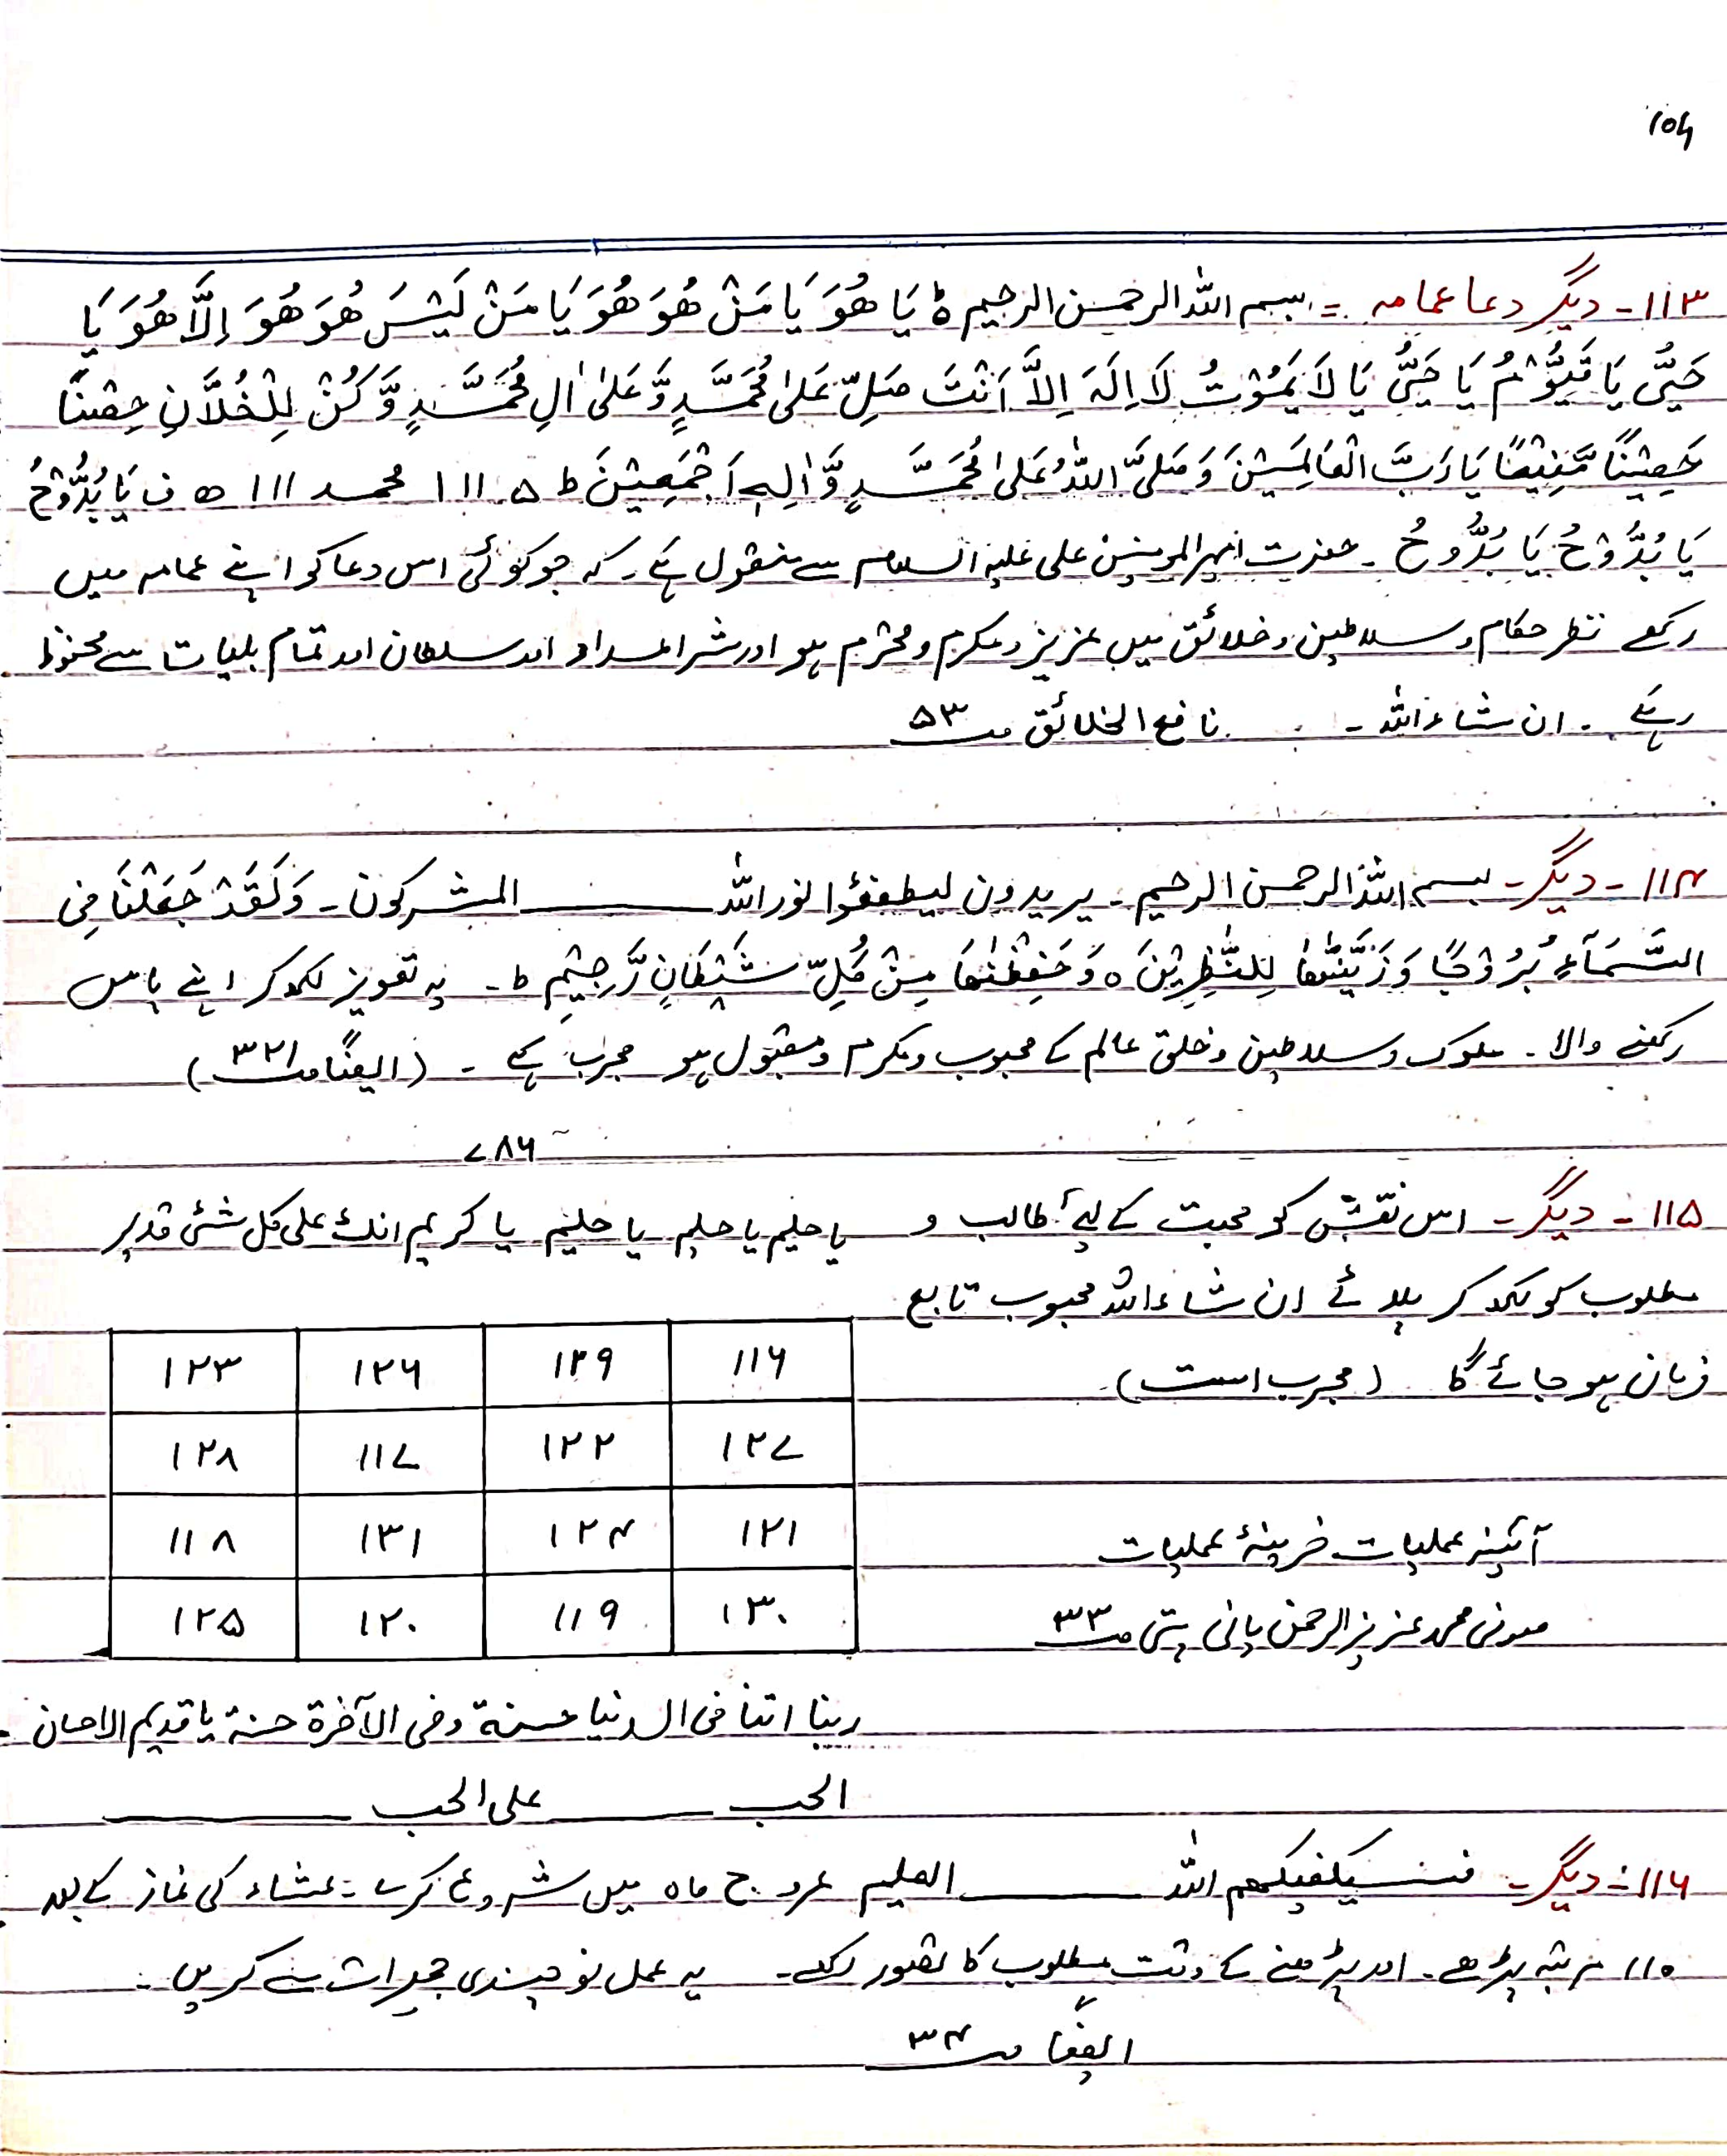 ۱۵۶
۱۱۳۔ دیگر دعا عمامہ =۔ بسم اللہ الرحمن الرحیم ہ یَا هُوَ یَا مَنْ هُوَ هُوَ یَا مَنْ لَیْسَ هُوَ هُوَ اِلَّا هُوَ یَا
حَیُّ یَا قَیُّوْمُ یَا حَیُّ یَا لَا یَمُوْتُ لَا اِلٰهَ اِلَّا اَنْتَ صَلِّ عَلیٰ مُحَمَّدٍ وَّ عَلیٰ اٰلِ مُحَمَّدٍ وَّ کُنْ لِلْخُلَّانِ حِصْنًا
حَصِیْنًا مَّنِیْعًا یَا رَبَّ الْعَالَمِیْنَ وَ صَلَّی اللّٰهُ عَلیٰ مُحَمَّدٍ وَّاٰلِہٖ اَجْمَعِیْنَ ط ۵ ۱۱۱ محمد ۱۱۱ ہ ف یَا بُدُّوْحُ
یَا بُدُّوْحُ یَا بُدُّوحُ ۔ حضرت امیر المومنین علی علیہ السلام سے منقول ہے۔ کہ جو کوئی اس دعا کو اپنے عمامہ میں
رکھے نظر حکام و سلاطین و خلائق میں عزیز و مکرم و محترم ہو اور شر اعدا اور سلطان اور تمام بلیات سے محفوظ
رہے ۔ ان شاء اللہ ۔ نافع الخلائق صـ ۵۳
۱۱۴۔ دیگر۔ بسم اللہ الرحمن الرحیم ۔ یریدون لیطفؤا نور اللہ ــــــ المشرکون ۔ وَلَقَدْ جَعَلْنَا فِی
السَّمَآءِ بُرُوْجًا وَ زَیَّنّٰهَا لِلنّٰظِرِیْنَ ہ وَ حَفِظْنٰهَا مِنْ کُلِّ شَیْطَانٍ رَّجِیْمٍ ط ۔ یہ تعویز لکھ کر اپنے پاس
رکھنے والا۔ ملوک و سلاطین و خلق عالم کے محبوب و مکرم و مقبول ہو مجرب ہے ۔ (ایضًا صـ ۳۲۱)
۷۸۶
۱۱۵ ۔ دیگر ۔ اس نقش کو محبت کے لیے طالب و
یا حلیم یا حلیم یا حلیم یا کریم انک علی کل شئی قدیر
مطلوب کو لکھ کر پلائے ان شاء اللہ محبوب تابع
فرمان ہو جائے گا (مجرب است)۔
۱۱۶ ۱۲۹ ۱۲۶ ۱۲۳
۱۲۷ ۱۲۲ ۱۱۷ ۱۲۸
۱۲۱ ۱۲۴ ۱۳۱ ۱۱۸
۱۳۰ ۱۱۹ ۱۲۰ ۱۲۵
آئینہ عملیات خزینۂ عملیات
صوفی محمد عزیز الرحمن پانی پتی صـ ۳۳
ربنا اتنا فی الدنیا حسنة وفی الآخرة حسنة یا قدیم الاحسان ۔
الحب ــــــ علی الحب ــــــ
۱۱۶۔ دیگر ۔ فسیکفیکهم اللہ ــــــ العلیم عروج ماہ میں شروع کرے ۔ عشاء کی نماز کے بعد
۱۱۰ مرتبہ پڑھے ۔ اور پڑھنے کے وقت مطلوب کا تصور رکھے ۔ یہ عمل نوچندی جمعرات سے کریں ۔
ایضا صـ ۳۴